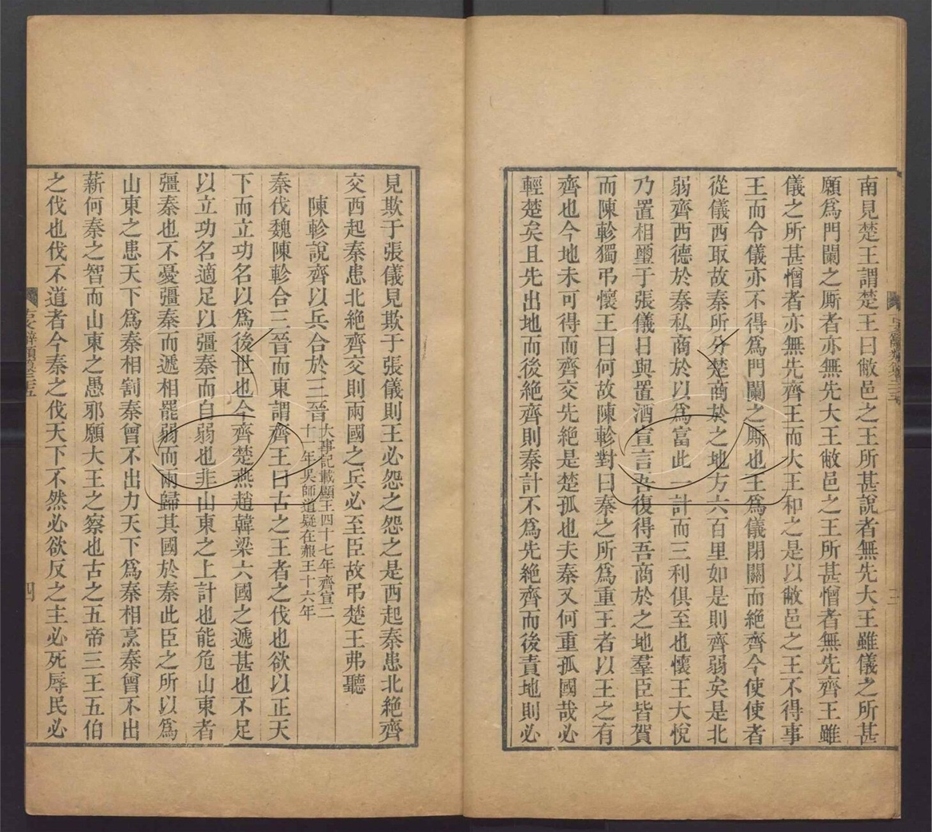 南見楚王謂楚王曰敝邑之王所甚說者無先大王雖儀之所甚
願爲門闌之厮者亦無先大王敝邑之王所甚憎者無先齊王雖
儀之所甚憎者亦無先齊王而大王和之是以敝邑之王不得事
王而令儀亦不得爲門闌之厮也王爲儀閉關而絶齊今使使者
從儀西取故秦所分楚商於之地方六百里如是則齊弱矣是北
弱齊西德於秦私商於以爲富此一計而三利俱至也懷王大悅
乃置相璽于張儀日與置酒宣言吾復得吾商於之地羣臣皆賀
而陳軫獨弔懷王曰何故陳軫對曰秦之所爲重王者以王之有
齊也今地未可得而齊交先絶是楚孤也夫秦又何重孤國哉必
輕楚矣且先出地而後絶齊則秦計不爲先絶齊而後責地則必
三
見欺于張儀見欺于張儀則王必怨之怨之是西起秦患北絶齊
交西起秦患北絶齊交則兩國之兵必至臣故弔楚王弗聽
陳軫說齊以兵合於三晉大事記載顯王四十七年齊宣二
十一年吳師道疑在赧王十六年
秦伐魏陳軫合三晉而東謂齊王曰古之王者之伐也欲以正天
下而立功名以爲後世也今齊楚燕趙韓梁六國之遞甚也不足
以立功名適足以彊秦而自弱也非山東之上計也能危山東者
彊秦也不憂彊秦而遞相罷弱而兩歸其國於秦此臣之所以爲
山東之患天下爲秦相割秦曾不出力天下爲秦相烹秦曾不出
薪何秦之智而山東之愚邪願大王之察也古之五帝三王五伯
之伐也伐不道者今秦之伐天下不然必欲反之主必死辱民必
四